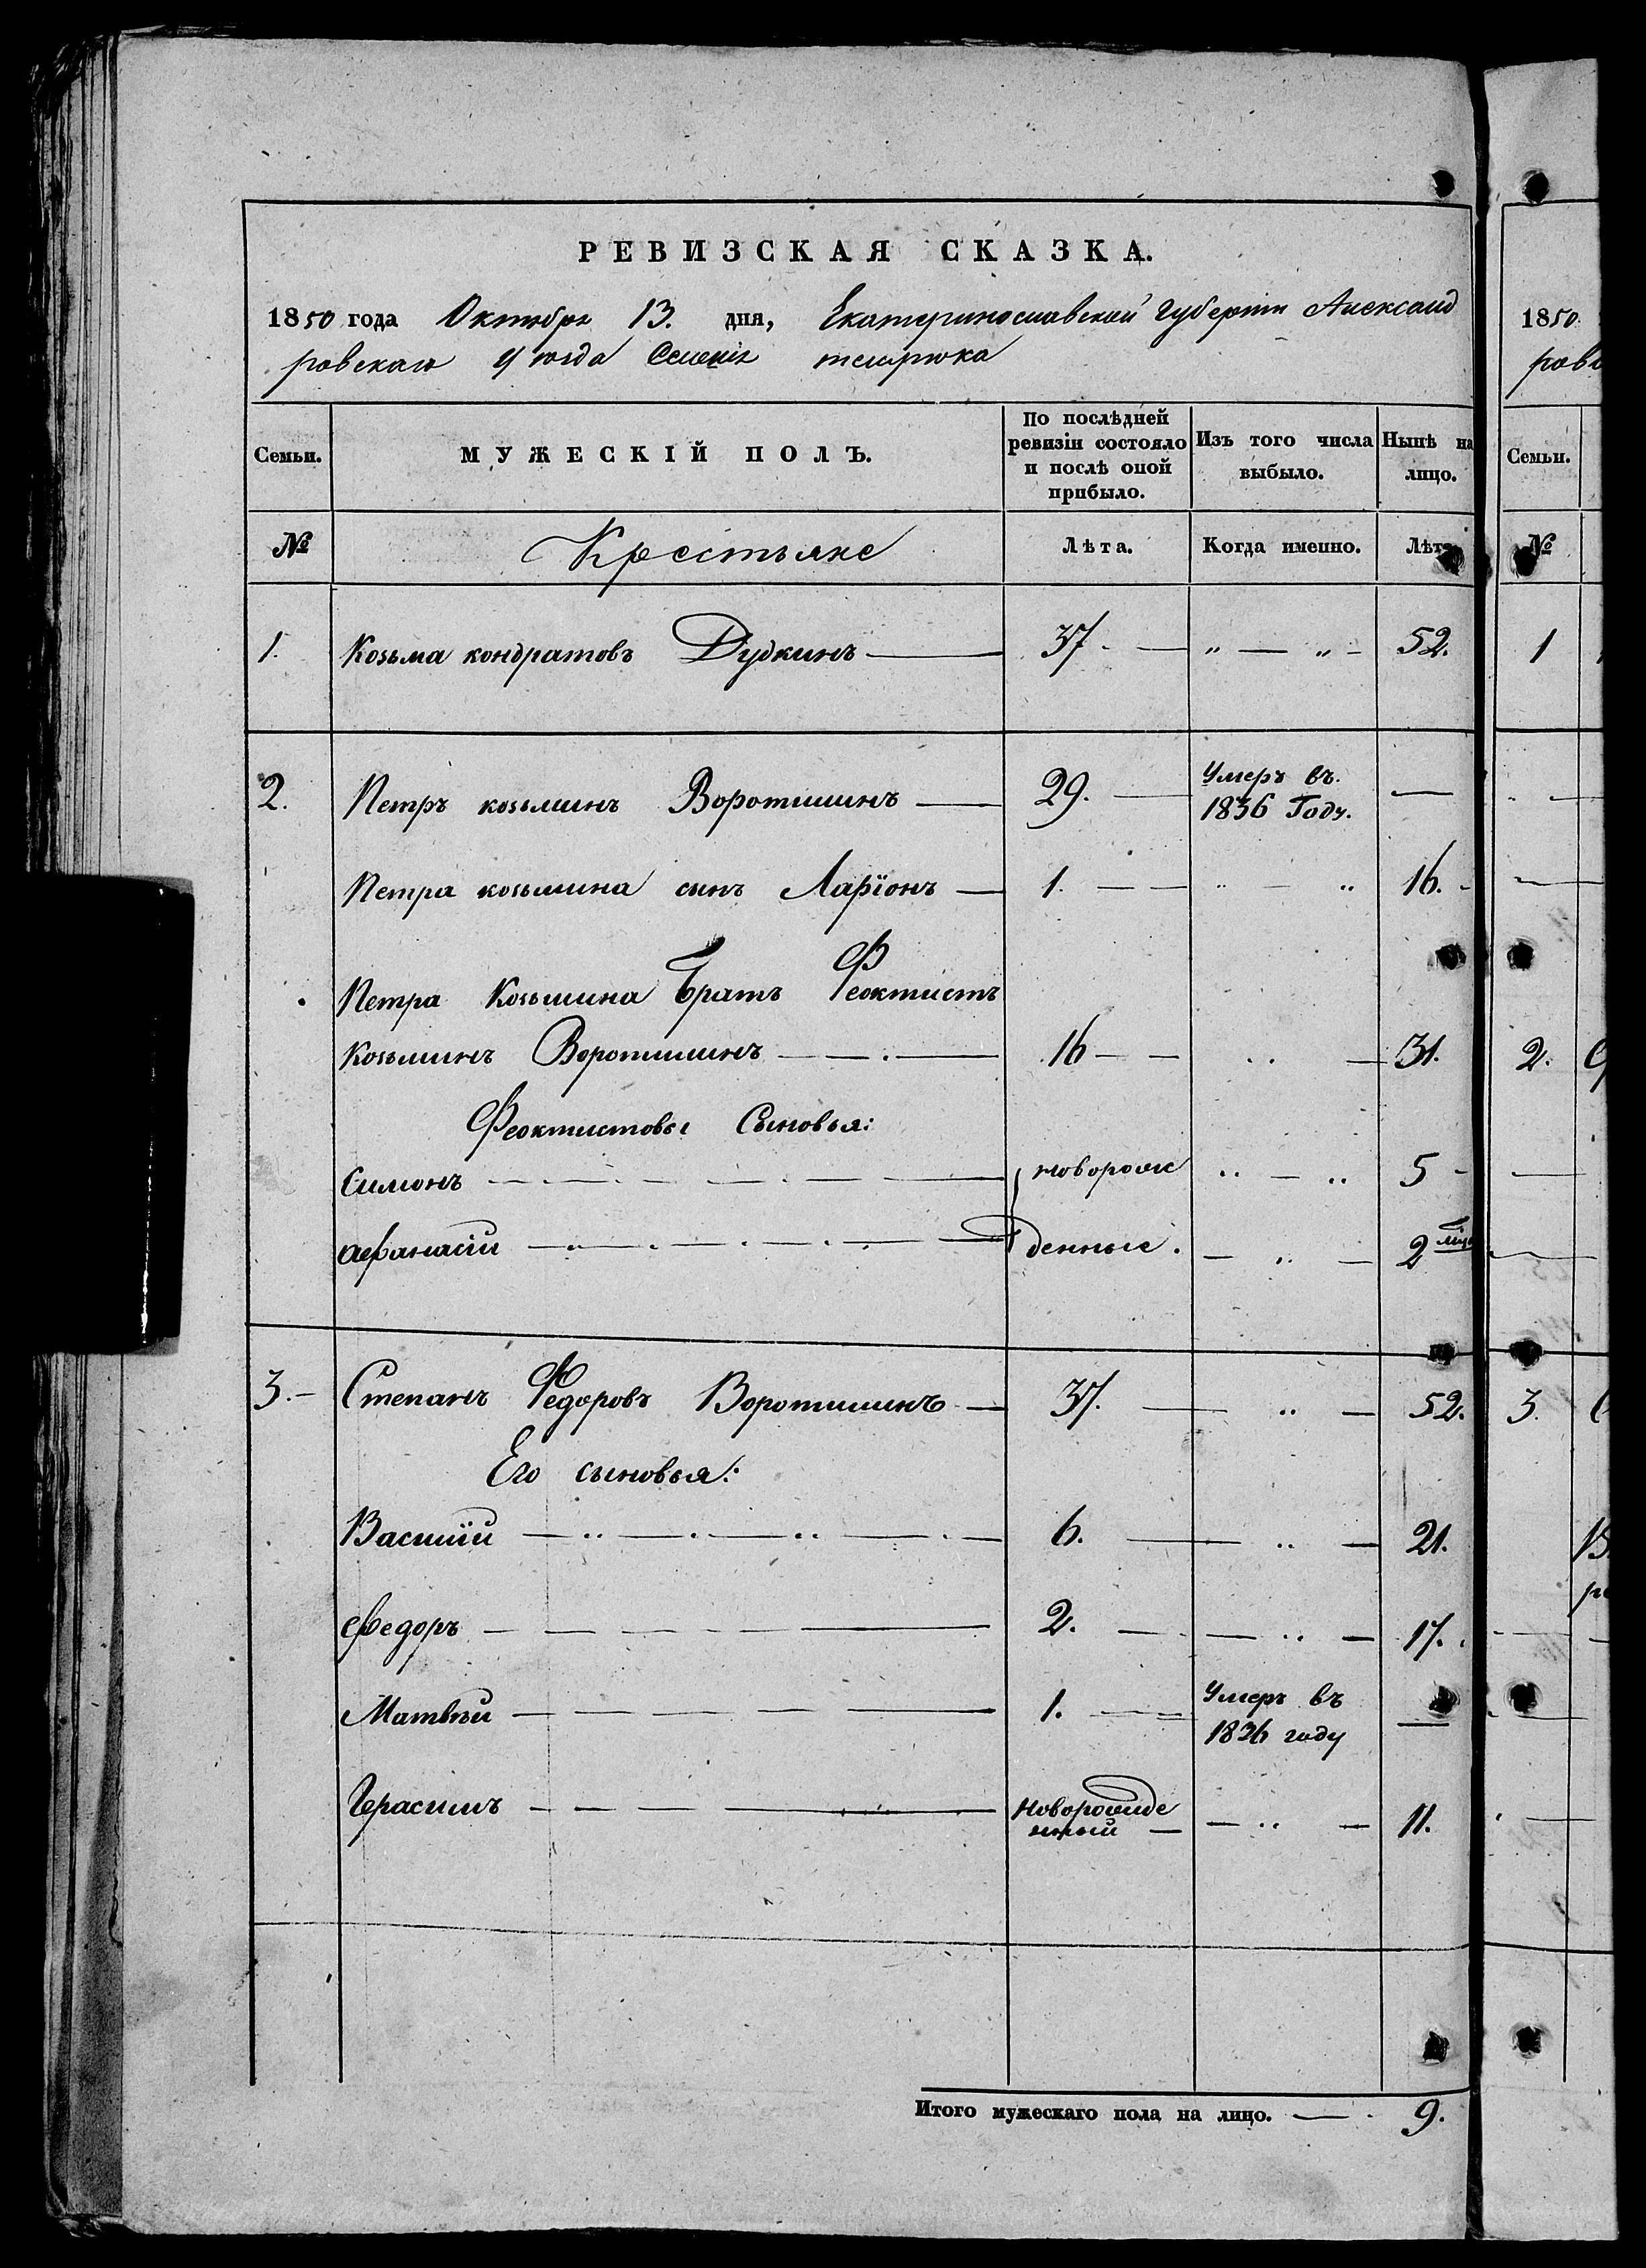 РЕВИЗСКАЯ СКАЗКА.
1850 года Октября 13. дня, Екатеринославской Губернiи Александ
ровскаго уѣзда Селенiя темрюка
Семьи. МУЖЕСКIЙ ПОЛЪ. По послѣдней ревизiи состояло и послѣ оной прибыло. Изъ того числа выбыло. Нынѣ на лицо.
№ Крестьяне Лѣта. Когда именно. Лѣта
1. Козьма кондратовъ Дудкинъ — 37. — „ — „ — 52.
2. Петръ козьминъ Воротилинъ — 29. — Умеръ въ 1836 Году. —
Петра козьмина сынъ Ларiонъ — 1. — — „ — „ 16. -
Петра Козьмина Братъ Феоктистъ
Козьминъ Воротилинъ — — . — 16 — — . . — 31.
Феоктистовы Сыновья:
Симонъ новорож „ — „ 5 -
афанасiй денные. — „ — 2
3. – Степанъ Федоровъ Воротилинъ — 37. — „ — 52.
Его сыновья:
Василiй 6. — „ — 21.
Федоръ 2. — — „ — 17.
Матвѣй 1. — Умеръ въ 1836 году —
Герасимъ новорожде нный — — „ — 11.
Итого мужескаго пола на лицо. — . 9.
1850
ровс
Семьи.
№
1
2.
3.